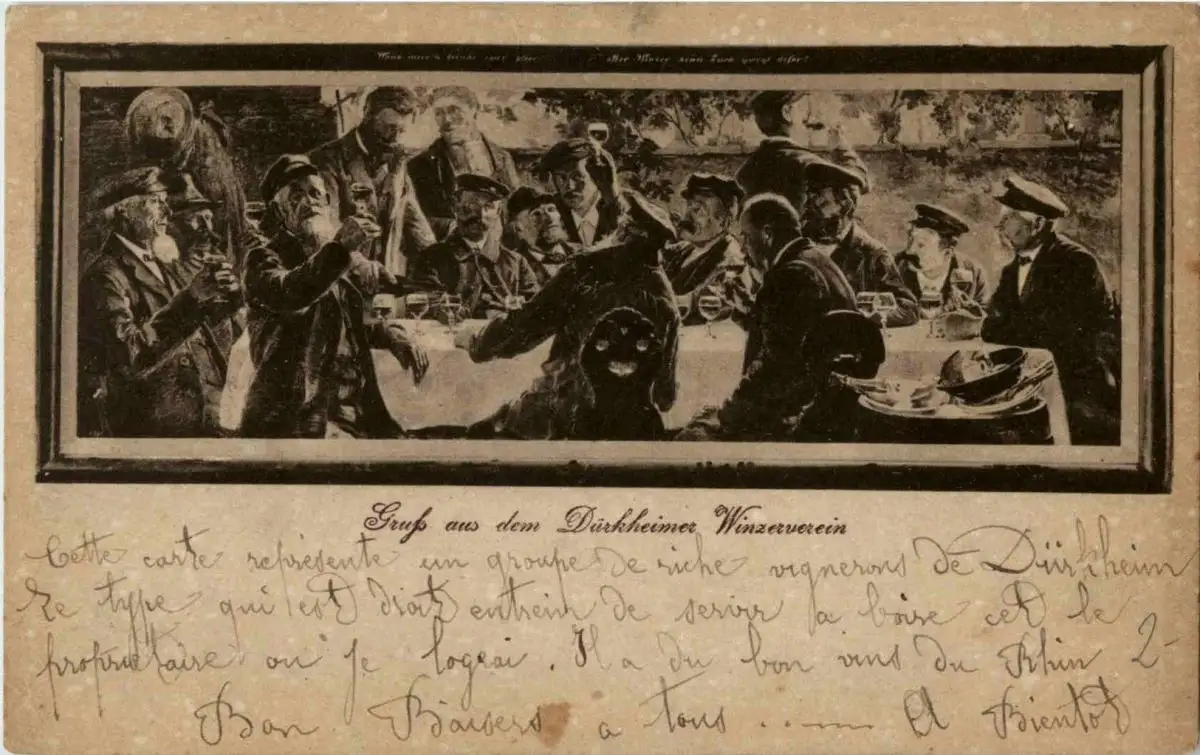 Wann
Gruß aus dem Dürkheimer Winzerverein
Cette carte représente un groupe de riche vignerons de Dürkheim
Le type qui est droit entrein de servir a boire cet le
proprietaire ou je logeai. Il a du bon vins du Rhin 2-
Bon Baisers a tous ..... A Bientot